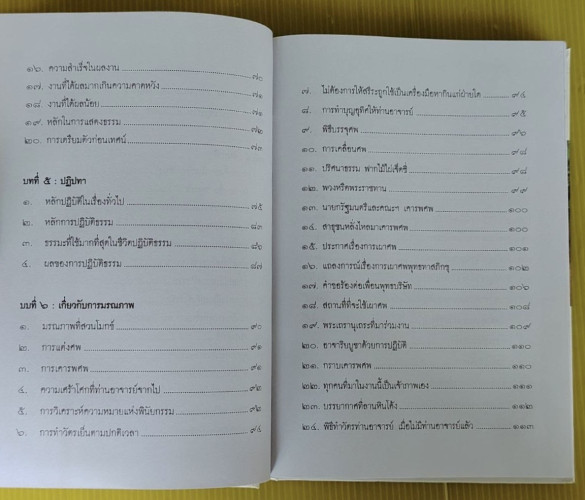 ๑๖. ความสำเร็จในผลงาน ๗๐
๑๗. งานที่ได้ผลมากเกินความคาดหวัง ๗๑
๑๘. งานที่ได้ผลน้อย ๗๑
๑๙. หลักในการแสดงธรรม ๗๒
๒๐. การเตรียมตัวก่อนเทศน์ ๗๓
บทที่ ๕ : ปฏิปทา
๑. หลักปฏิบัติในเรื่องทั่วไป ๗๕
๒. หลักการปฏิบัติธรรม ๘๓
๓. ธรรมะที่ใช้มากที่สุดในชีวิตปฏิบัติธรรม ๘๖
๔. ผลของการปฏิบัติธรรม ๘๗
บทที่ ๖ : เกี่ยวกับการมรณภาพ
๑. มรณภาพที่สวนโมกข์ ๙๐
๒. การแต่งศพ ๙๑
๓. การเคารพศพ ๙๑
๔. ความเศร้าโศกที่ท่านอาจารย์จากไป ๙๒
๕. การวิเคราะห์ความหมายแห่งพินัยกรรม ๙๒
๖. การทำวัตรเย็นตามปกติเวลา ๙๔
๗. ไม่ต้องการให้สรีระถูกใช้เป็นเครื่องมือหากินแก่ฝ่ายใด ๙๔
๘. การทำบุญอุทิศให้ท่านอาจารย์ ๙๕
๙. พิธีบรรจุศพ ๙๖
๑๐. การเคลื่อนศพ ๙๘
๑๑. ปริศนาธรรม ฟากไม้ไผ่เจ็ดซี่ ๙๘
๑๒. พวงหรีดพระราชทาน ๙๙
๑๓. นายกรัฐมนตรีและคณะฯ เคารพศพ ๑๐๐
๑๔. สาธุชนหลั่งไหลมาเคารพศพ ๑๐๐
๑๕. ประกาศเรื่องการเผาศพ ๑๐๑
๑๖. แถลงการณ์เรื่องการเผาศพพุทธทาสภิกขุ ๑๐๒
๑๗. คำขอร้องต่อเพื่อนพุทธบริษัท ๑๐๖
๑๘. สถานที่ที่จะใช้เผาศพ ๑๐๘
๑๙. พระเถรานุเถระที่มาร่วมงาน ๑๐๙
๒๐. อาจาริยบูชาด้วยการปฏิบัติ ๑๑๐
๒๑. กราบเคารพศพ ๑๑๐
๒๒. ทุกคนที่มาในงานนี้เป็นเจ้าภาพเอง ๑๑๑
๒๓. บรรยากาศที่ลานหินโค้ง ๑๑๒
๒๔. พิธีทำวัตรท่านอาจารย์ เมื่อไม่มีท่านอาจารย์แล้ว ๑๑๓